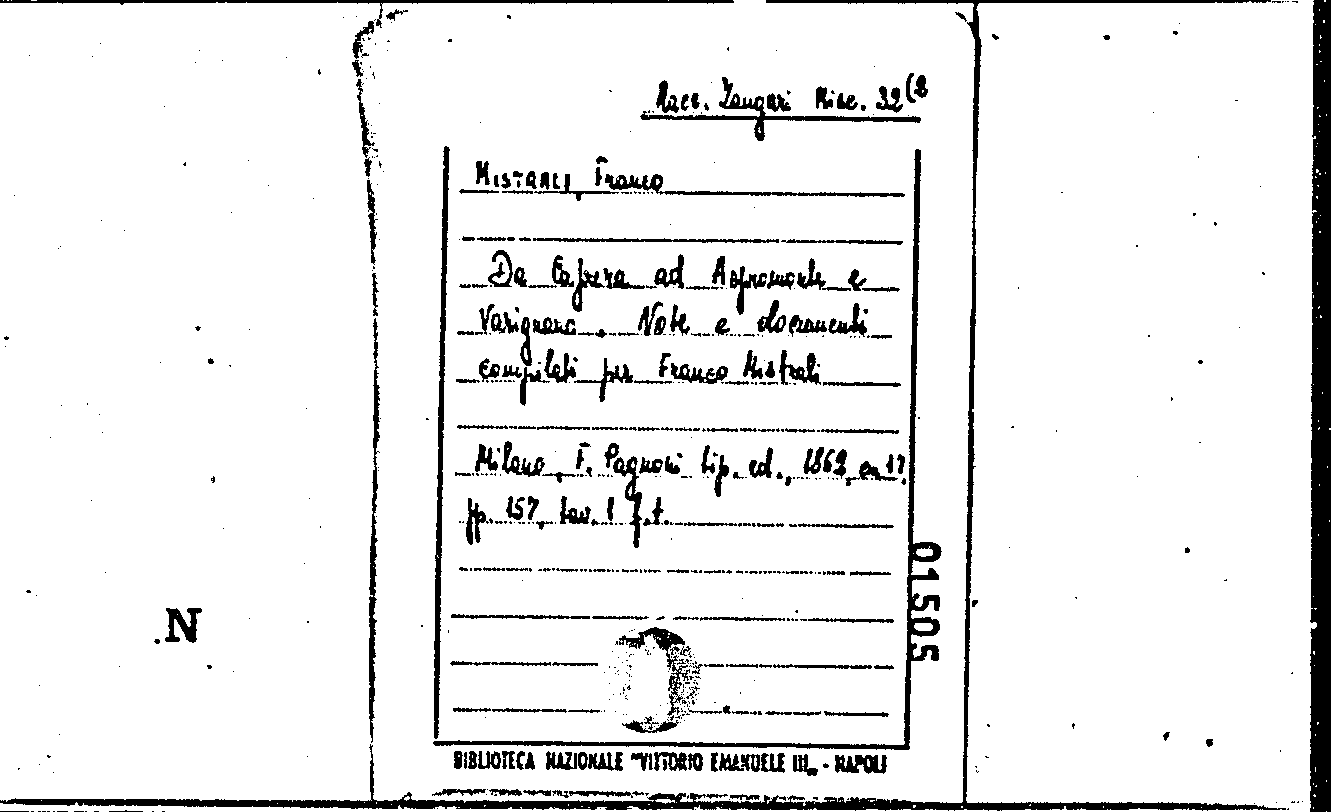 Racc. Zangari Misc. 32(2
MISTRALI, Franco
Da Caprera ad Aspromonte e
Varignano. Note e documenti
compilati per Franco Mistrali
Milano, F. Pagnoni tip. ed., 1862, cm 17,
pp. 157, tav. 1 f.t.
01505
.N
BIBLIOTECA NAZIONALE "VITTORIO EMANUELE III„ - NAPOLI